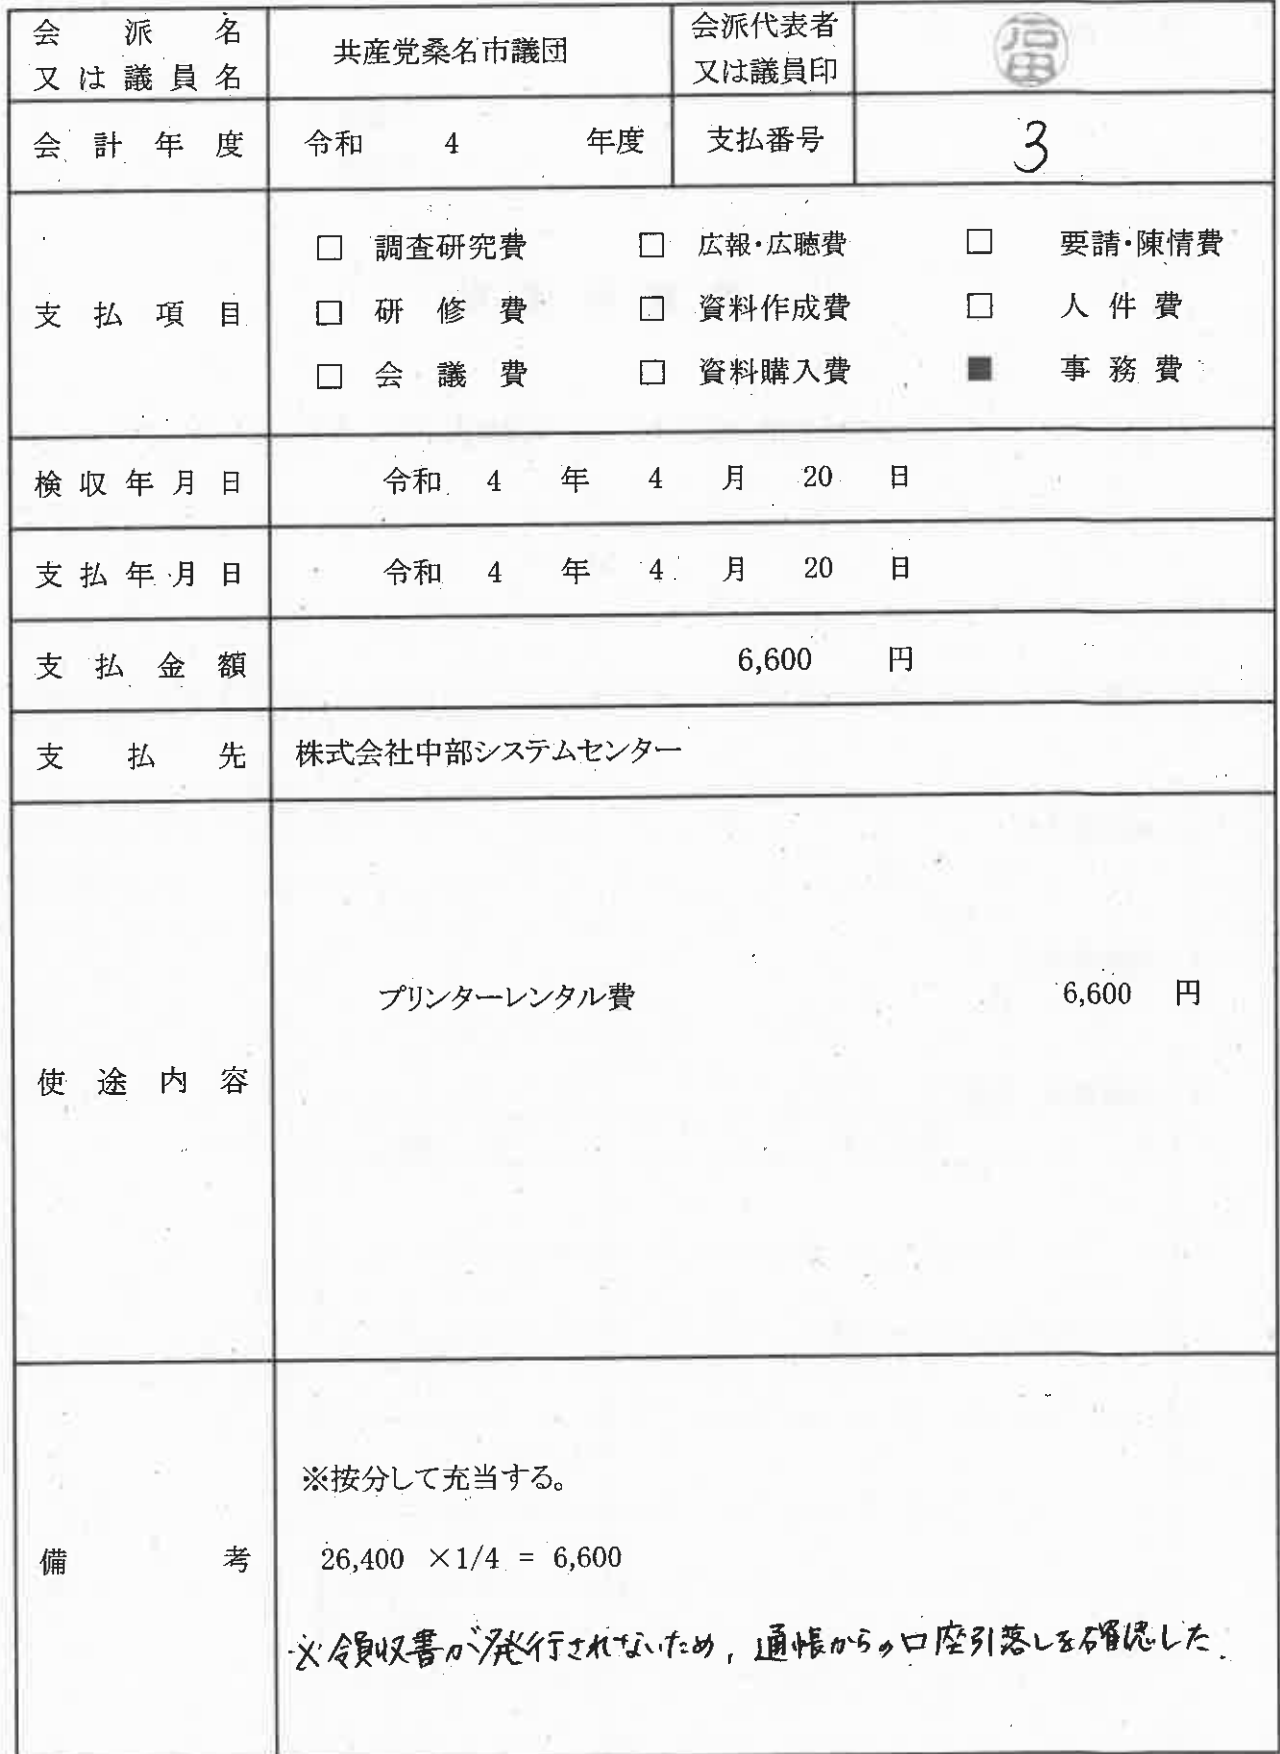 会派名
又は議員名
共産党桑名市議団
会派代表者
又は議員印
会計年度
令和 4 年度
支払番号
3
支払項目
□ 調査研究費 □ 広報・広聴費 □ 要請・陳情費
□ 研修費 □ 資料作成費 □ 人件費
□ 会議費 □ 資料購入費 ■ 事務費
検収年月日
令和 4 年 4 月 20 日
支払年月日
令和 4 年 4 月 20 日
支払金額
6,600 円
支払先
株式会社中部システムセンター
使途内容
プリンターレンタル費 6,600 円
備考
※按分して充当する。
26,400 ×1/4 = 6,600
※領収書が発行されないため,通帳からの口座引落しを確認した.